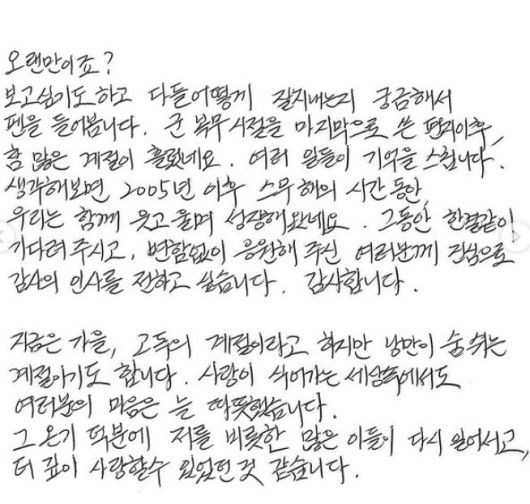 오랜만이죠?
보고싶기도하고 다들어떻게 잘지내는지 궁금해서
펜을 들어봅니다. 군 복무시절을 마지막으로 쓴 편지이후,
참 많은 계절이 흘렀네요. 여러 일들이 기억을 스칩니다.
생각해보면 2005년 이후 스무 해의 시간 동안,
우리는 함께 웃고 울며 성장해왔네요. 그동안, 한결같이
기다려 주시고, 변함없이 응원해 주신 여러분께 진심으로
감사의 인사를 전하고 싶습니다. 감사합니다.
지금은 가을, 고독의 계절이라고 하지만 낭만이 숨쉬는
계절이기도 합니다. 사랑이 식어가는 세상속에서도
여러분의 마음은 늘 따뜻했습니다.
그 온기 덕분에 저를 비롯한 많은 이들이 다시 일어서고,
더 깊이 사랑할수 있었던 것 같습니다.